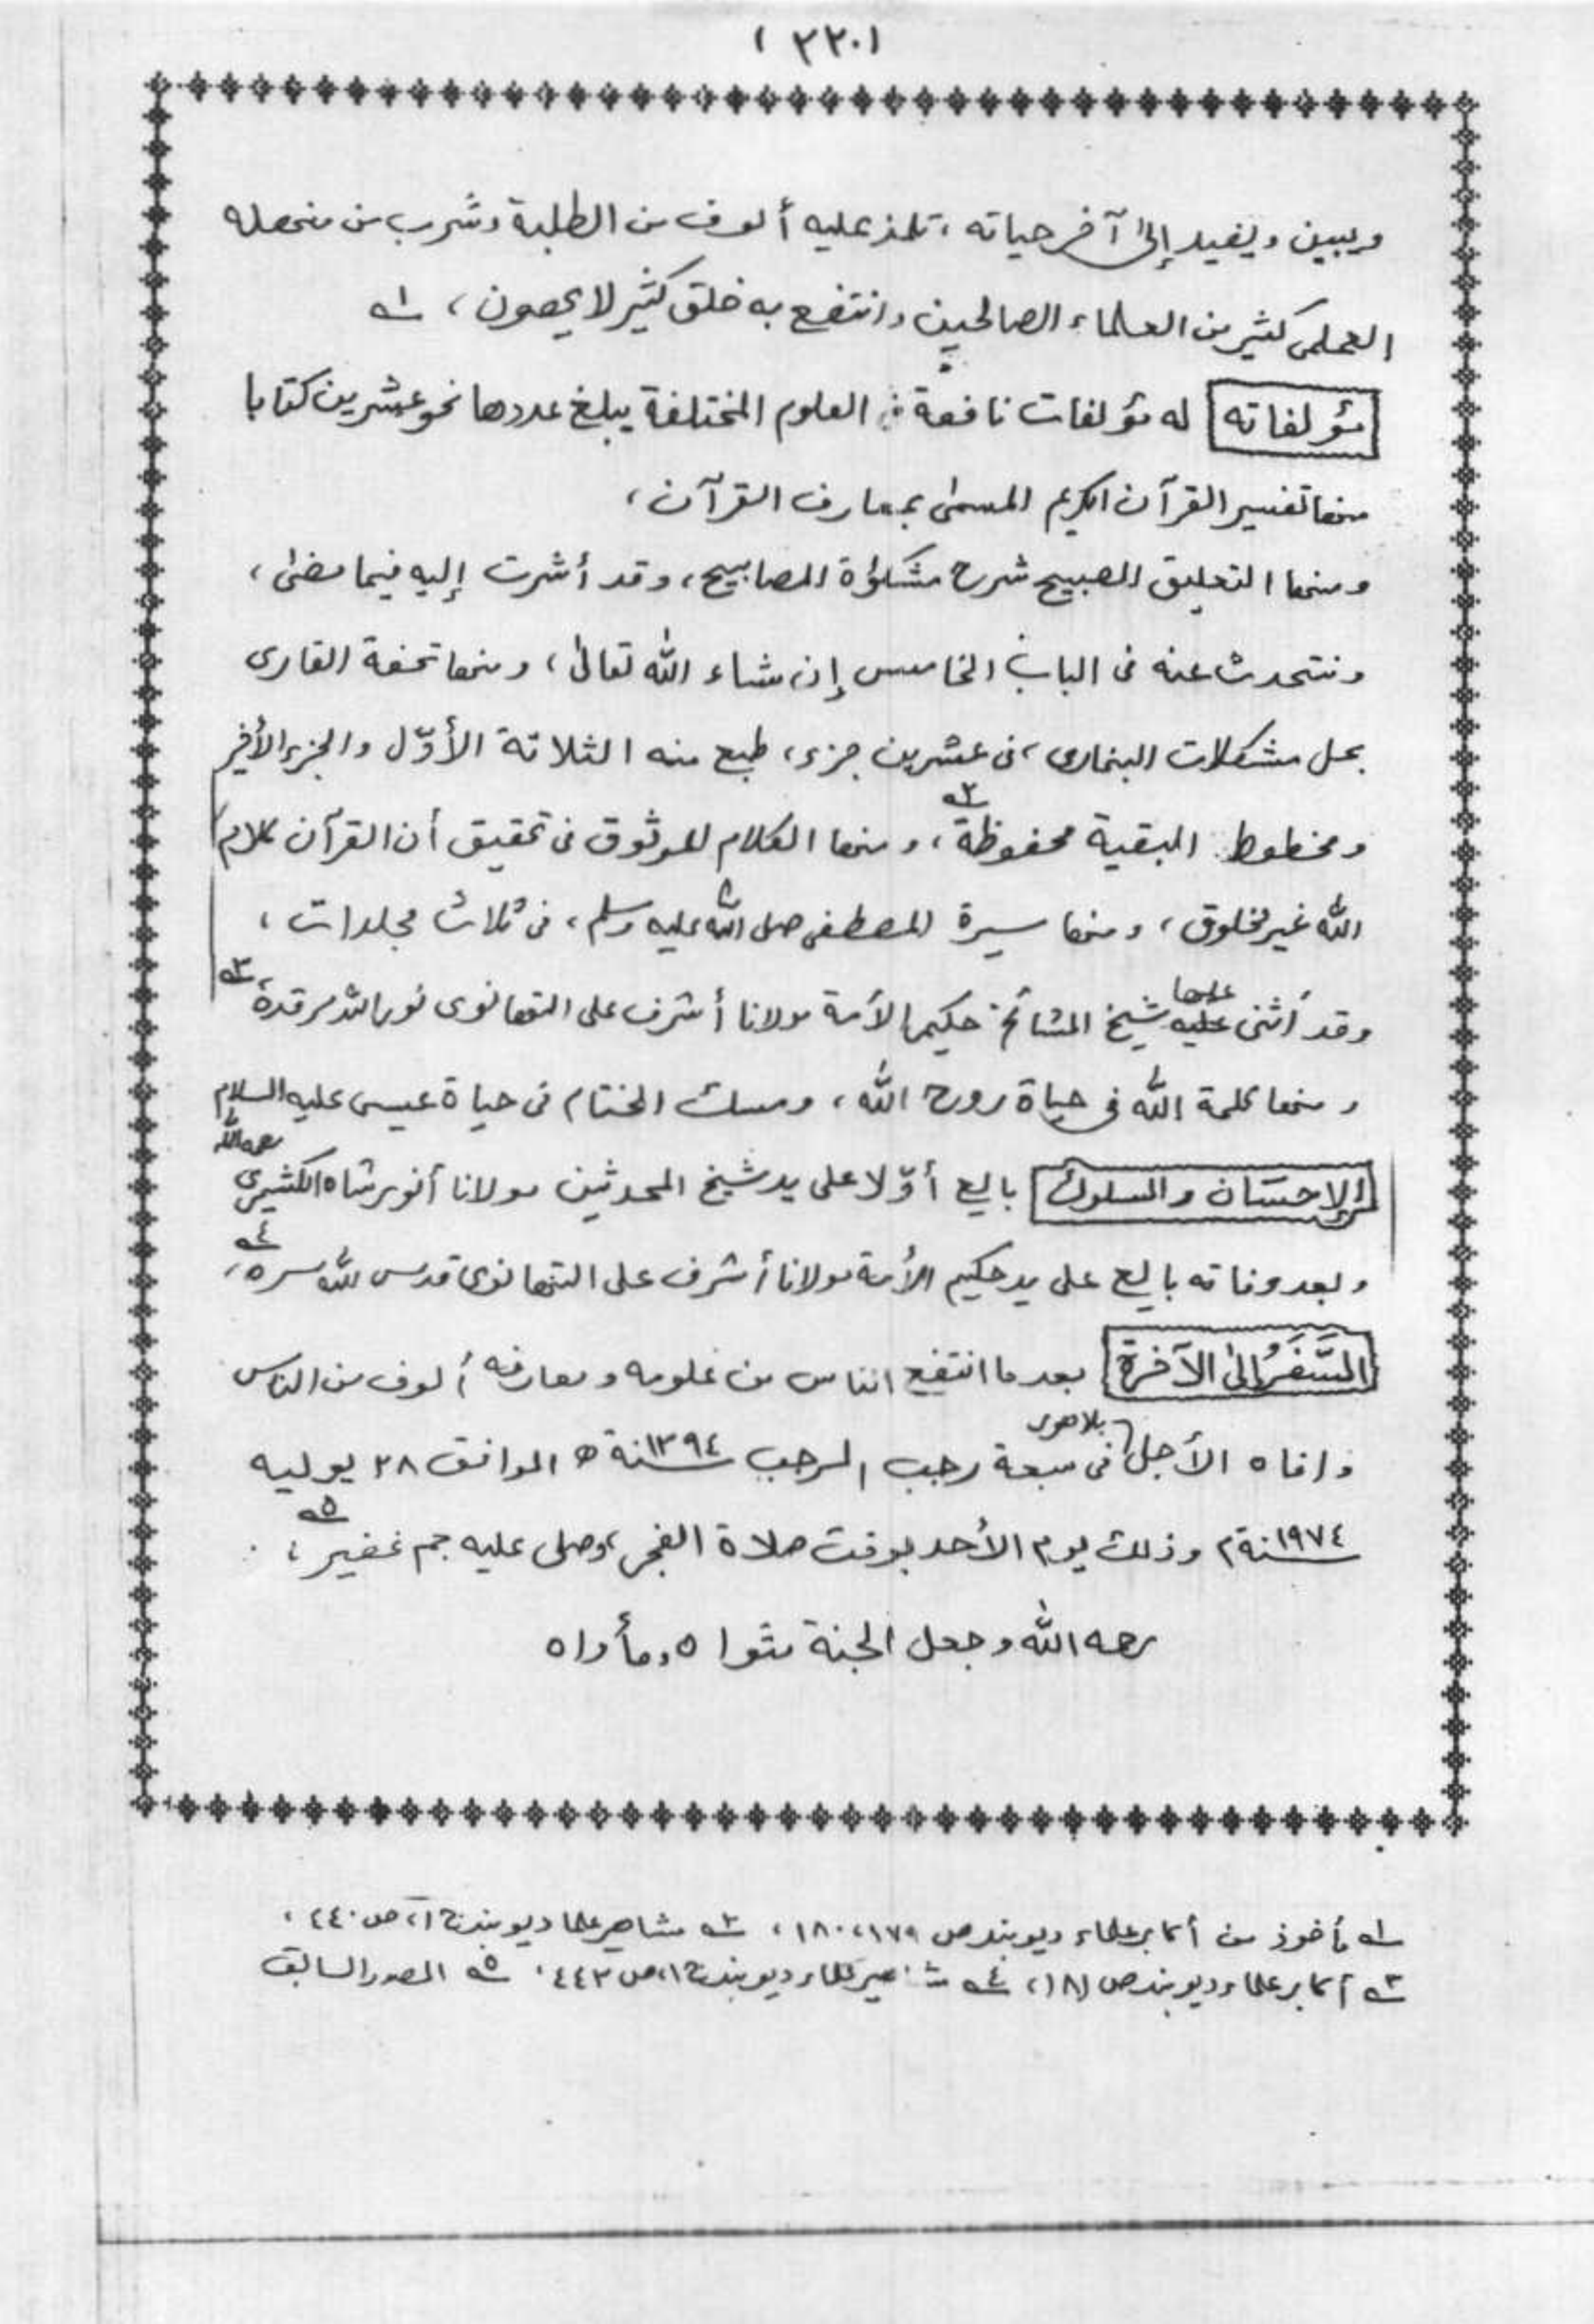 (٣٢٠)
ويبين ويفيد إلى آخر حياته، تلمذ عليه ألوف من الطلبة وشرب من منهله
العلمى كثير من العلماء الصالحين وانتفع به خلق كثير لا يحصون، ١ـه
مؤلفاته له مؤلفات نافعة فى العلوم المختلفة يبلغ عددها نحو عشرين كتابا
منها تفسير القرآن الكريم المسمى بمعارف القرآن،
ومنها التعليق الصبيح شرح مشكوٰة المصابيح، وقد أشرت إليه فيما مضىٰ،
ونتحدث عنه فى الباب الخامس إن شاء الله تعالىٰ، ومنها تحفة القارى
بحل مشكلات البخارى، فى عشرين جزء، طبع منه الثلاثة الأوّل والجزء الأخير
ومخطوط البقية محفوظة٢ـه، ومنها الكلام الموثوق فى تحقيق أن القرآن كلام
الله غير مخلوق، ومنها سيرة المصطفى صلى الله عليه وسلم، فى ثلاث مجلدات،
وقد أثنى عليها شيخ المشائخ حكيم الأمة مولانا أشرف على التهانوى نور الله مرقده، ٣ـه
ومنها كلمة الله فى حياة روح الله، ومسك الختام فى حياة عيسى عليه السلام
الإحسان والسلوك بايع أوّلا على يد شيخ المحدثين مولانا أنور شاه الكشميرى رحمه الله
وبعد وفاته بايع على يد حكيم الأمة مولانا أشرف على التهانوى قدس الله سره، ٤ـه
السَّفَرُ إلى الآخرة بعد ما انتفع الناس من علومه ومعارفه ألوف من الناس
وافاه الأجل بلاهور فى سبعة رجب المرجب سنة ١٣٩٤ ھ الموافق ٢٨ يوليه
سنة ١٩٧٤م وذلك يوم الأحد بوقت صلاة الفجر، وصلى عليه جم غفير، ٥ـه
رحمه الله وجعل الجنة مثواه ومأواه
١ـه مأخوذ من أكابر علماء ديوبند ص ١٧٩، ١٨٠، ٢ـه مشاهير علما ديوبند ج ١، ص ٤٤٠،
٣ـه أكابر علماء ديوبند ص ١٨١، ٤ـه مشاهير علماء ديوبند ج ١، ص ٤٤٢، ٥ـه المصدر السابق